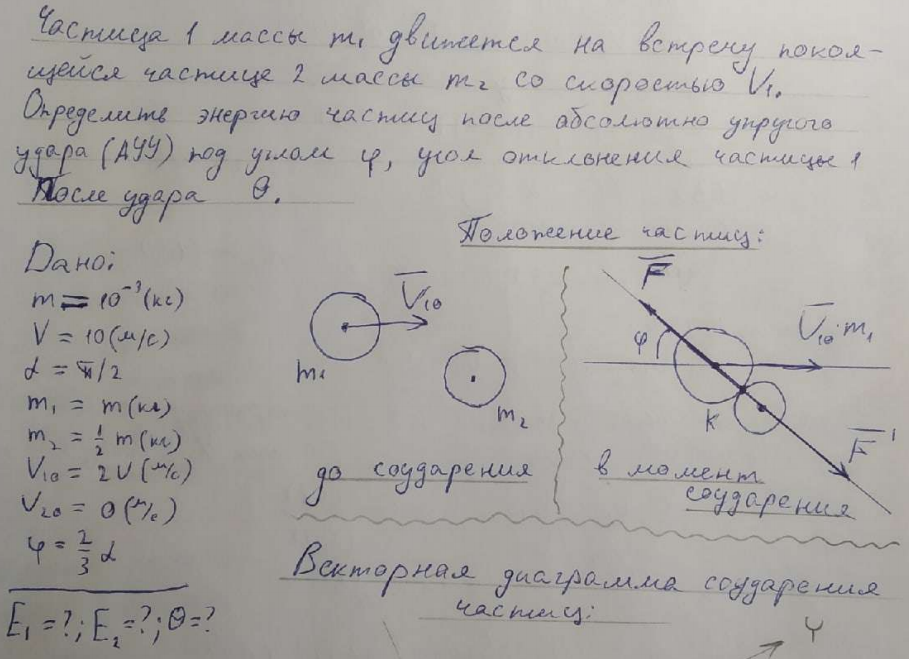 Частица 1 массы m₁ движется на встречу покоя-
щейся частице 2 массы m₂ со скоростью V₁.
Определить энергию частиц после абсолютно упругого
удара (АУУ) под углом φ, угол отклонения частицы 1
После удара θ.
Положение частиц:
Дано:
m = 10⁻³ (кг)
V = 10 (м/с)
α = π/2
m₁ = m (кг)
m₂ = ½ m (кг)
V₁₀ = 2V (м/с)
V₂₀ = 0 (м/с)
φ = 2/3 α
E₁ = ?; E₂ = ?; θ = ?
V̅₁₀
m₁
m₂
до соударения
F̅
φ
V̅₁₀·m₁
K
F̅'
в момент
соударения
Векторная диаграмма соударения
частиц:
Y